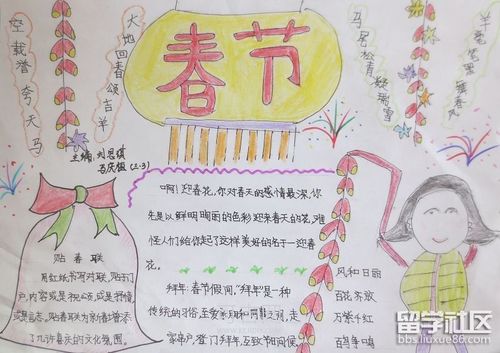 空载誉夸天马
大地回春颂吉羊
春节
马尾松青凝瑞雪
羊毫笔翠
春风
主编:刘思琪
(2.3)
贴春联
用红纸书写对联,贴于门
户,内容或是祝颂,或是抒情,
或是言志。贴春联为新春增添
了几许喜庆的文化氛围。
啊!迎春花,你对春天的感情最深,你
先是以鲜明晌丽的色彩迎来春天的花,难
怪人们给你起了这样美好的名子一迎春
花。
拜年:春节假间,"拜年"是一种
传统的习俗,至爱亲朋和同龄之间,走
家串户,登门拜年,互致节间问候
风和日丽
百花齐放
万紫千红
百鸟争鸣
留学社区
bbs.liuxue86.com